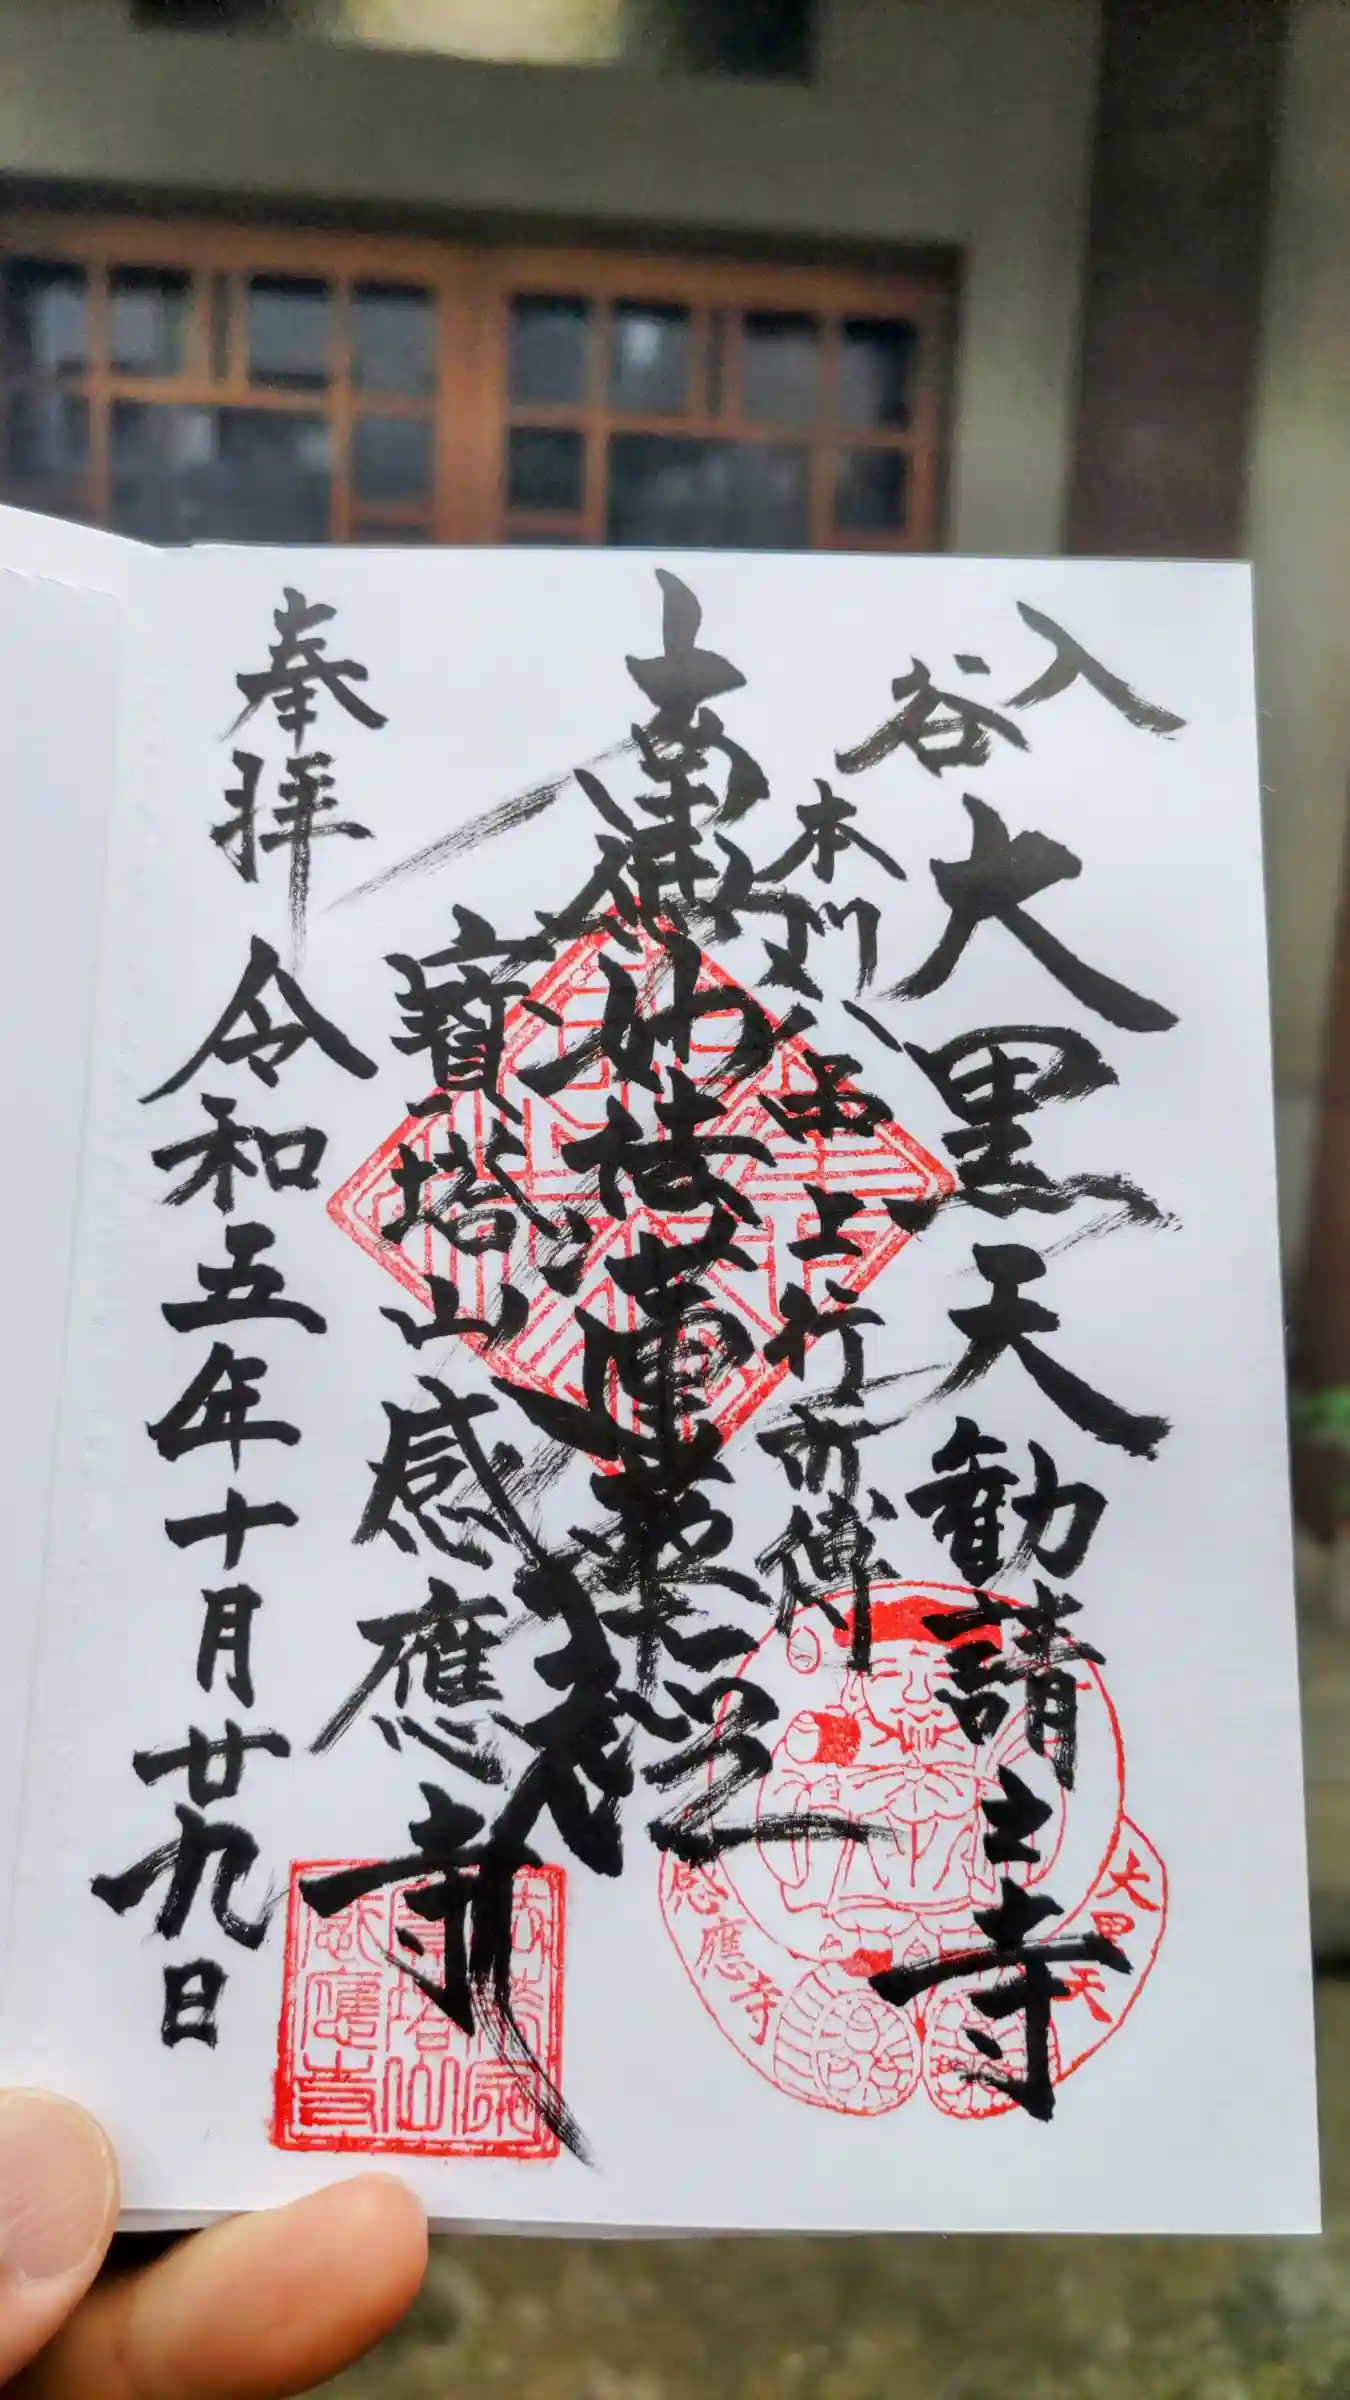 入谷
大黒天勧請主寺
本門八品上行所傳
南無妙法蓮華経
寶塔山
感應寺
奉拝 令和五年十月廿九日
大黒天
感應寺
寶塔山
感應寺